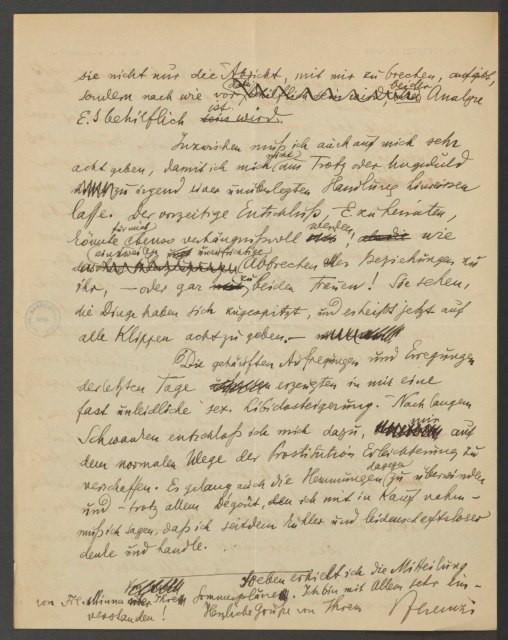 sie nicht nur die Absicht, mit mir zu brechen, aufgibt,
sondern nach wie vor bei der Analyse
E.s behilflich ist
Inzwischen muß ich auch auf mich sehr
acht geben, damit ich mich nicht aus Trotz oder Ungeduld
zu irgend einer unüberlegten Handlung hinreissen
lasse. Der vorzeitige Entschluß, E. zu heiraten,
könnte für mich ebenso verhängnißvoll werden, wie
Abbrechen der Beziehungen zu
ihr, – oder gar zu beiden Frauen! Sie sehen,
die Dinge haben sich zugespitzt, und es heißt jetzt auf
alle Klippen acht zu geben. –
Die gehäuften Aufregungen und Erregungen
der letzten Tage erzeugten in mir eine
fast unleidliche sex. Libidosteigerung. Nach langem
Schwanken entschloß ich mich dazu, mir auf
dem normalen Wege der Prostitution Erleichterung zu
verschaffen. Es gelang auch die Hemmungen dagegen zu überwinden
und – trotz allem Dégoût, den ich mit in Kauf nahm –
muß ich sagen, daß ich seitdem kühler und leidenschaftsloser
denke und handle.
Soeben erhielt ich die Mitteilung
von Frl. Minna über Ihre Sommerpläne. Ich bin mit Allem sehr ein-
verstanden! Herzliche Grüße von Ihrem Ferenczi